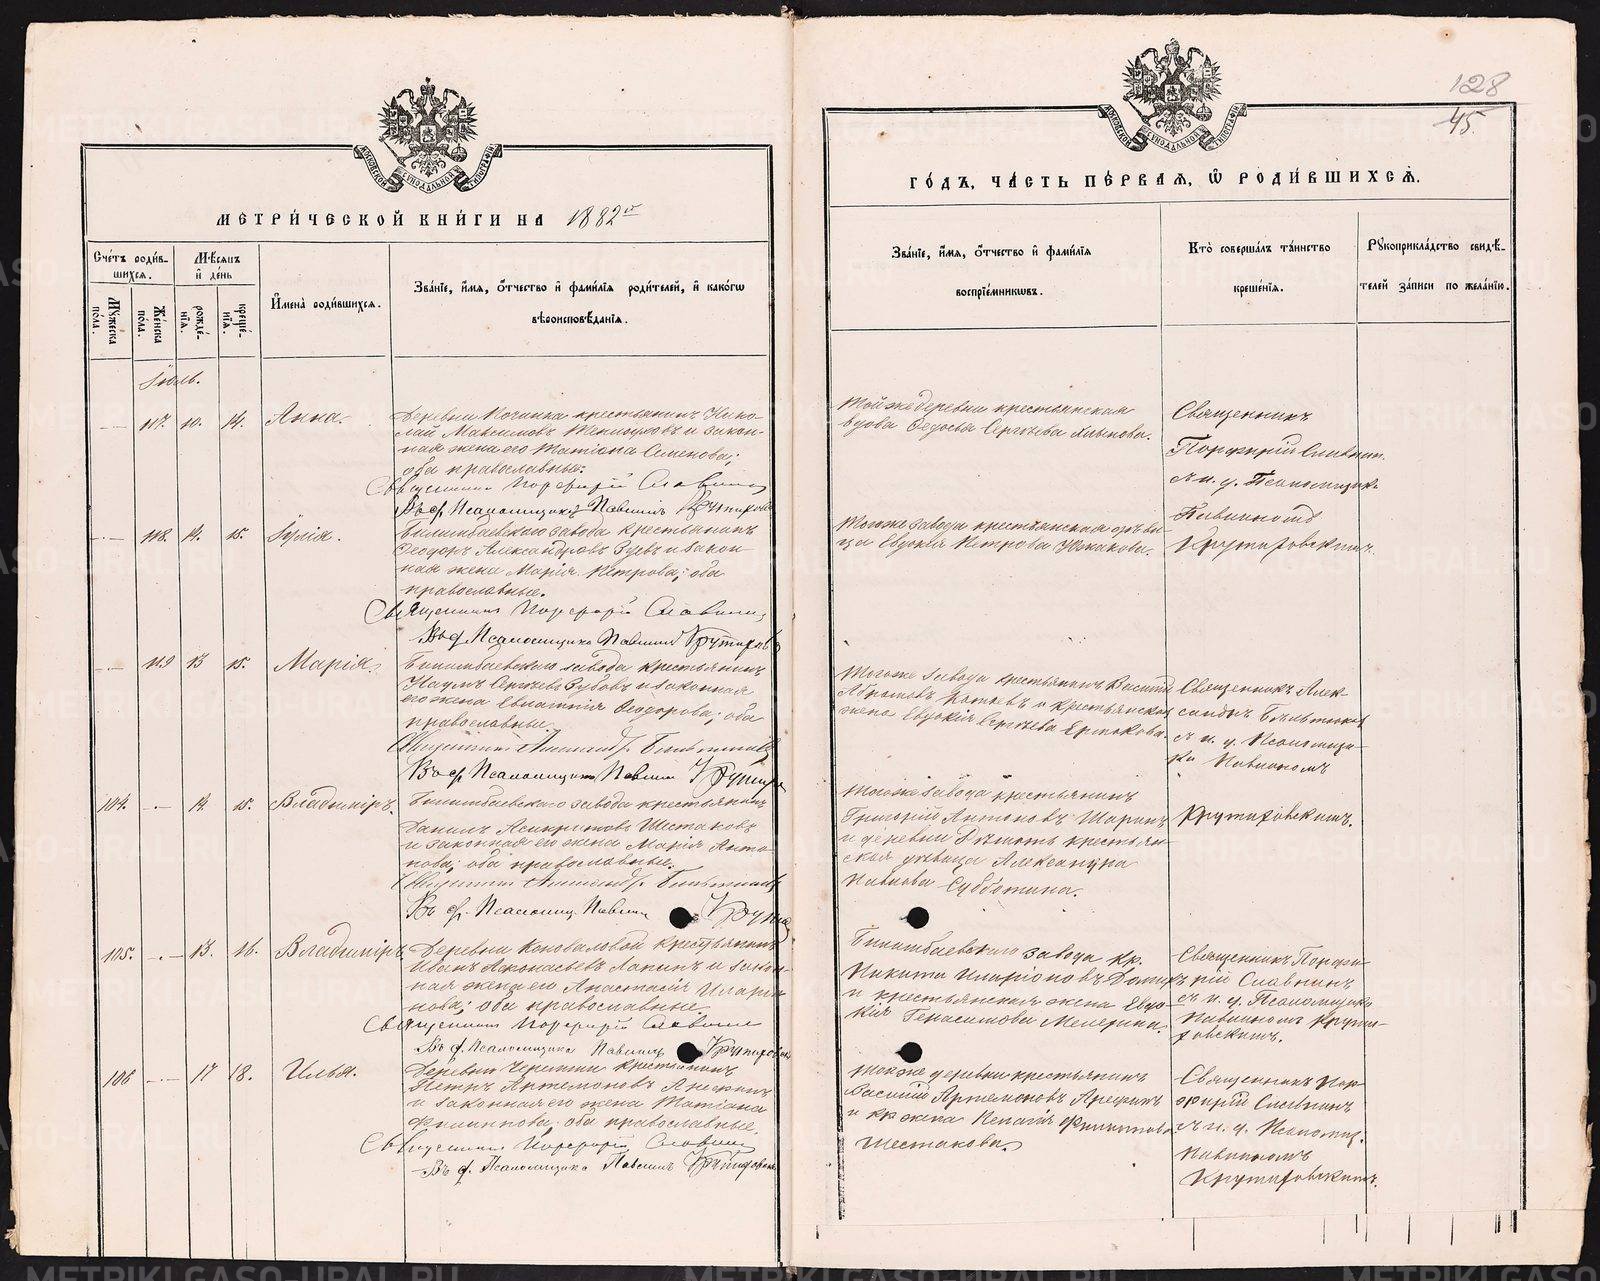 128
45.
МОСКОВСКОЙ СѴНОДАЛЬНОЙ ТИПОГРАФІИ
МЕТРИ́ЧЕСКОЙ КНИ́ГИ НА 1882 й
ГО́ДЪ, ЧА́СТЬ ПЕ́РВАЯ, Ѽ РОДИ́ВШИХСЯ.
Сче́тъ роди́в-
шихся.
Мѣ́сяцъ
и҆ де́нь
Мꙋ́жеска по́ла.
Же́нска по́ла.
рожде́-
нїя.
креще́-
нїя.
И҆мена̀ роди́вшихся.
Зва́нїе, и҆́мѧ, ѻ҆́тчество и҆ фами́лїѧ роди́телей, и҆ како́гѡ
вѣроисповѣ́данїѧ.
Зва́нїе, и҆́мѧ, ѻ҆́тчество и҆ фами́лїѧ
воспрїе́мникѡвъ.
Кто̀ соверша́лъ та́инство
креще́нїѧ.
Рꙋкоприкла́дство свидѣ́-
телей за́писи по жела́нїю.
Іюль.
117. 10. 14. Анна.
Деревни Починка крестьянинъ Нико-
лай Максимовъ и закон-
ная жена его Татіана Семенова;
оба православные.
Священникъ Порфирій Славнинъ
Въ д. Псаломщика Павлинъ Крутиховск
Тойже деревни крестьянская
вдова Федосья Сергѣева Хлынова.
Священникъ
Порфирій Славнин.
съ и. д. Псаломщик.
Павлиномъ
Крутиховскимъ.
118. 14. 15. Іулія.
Билимбаевскаго завода крестьянинъ
Феодоръ Александровъ Зуевъ и закон-
ная жена Марія Петрова; оба
православные.
Священникъ Порфирій Славнинъ
Въ д. Псаломщика Павлинъ Крутиховс
Тогоже завода крестьянская дѣви-
ца Евдокія Петрова Южакова.
119 13 15. Марія.
Билимбаевскаго завода крестьянинъ
Наумъ Сергѣевъ Зубовъ и законная
его жена Евлампія Феодорова; оба
православные.
Въ д. Псаломщика Павлинъ Крутихо
Тогоже завода крестьянинъ Василій
Абрамовъ и крестьянская
жена Евдокія Сергѣева Ермакова.
Священникъ Алек-
сандръ
съ и. д. Псаломщи-
ка Павлиномъ
Крутиховскимъ.
104. 14. 15. Владиміръ.
Билимбаевскаго завода крестьянинъ
Данилъ Асинкритовъ Шестаковъ
и законная его жена Марія Анто-
нова; оба православные.
Въ д. Псаломщ. Павлинъ Крути
Тогоже завода крестьянинъ
Григорій Антоновъ Шаринъ
и деревни крестьян-
ская дѣвица Александра
Павлова Субботина.
105. 13. 16. Владиміръ.
Деревни Коноваловой крестьянинъ
Иванъ Афонасьевъ Лапинъ и закон-
ная жена его Анастасія Иларіо-
нова; оба православные.
Священникъ Порфирій Славнинъ
Въ д. Псаломщика Павлинъ Крутиховск
Билимбаевскаго завода кр.
Никита Иларіоновъ
и крестьянская жена Евдо-
кія Герасимова Мецерина.
Священникъ Порфи-
рій Славнинъ
съ и. д. Псаломщика
Павлиномъ Крути-
ховскимъ.
106 17 18. Илья.
Деревни Черемши крестьянинъ
Петръ Артемоновъ
и законная его жена Татіана
Филиппова; оба православные.
Священникъ Порфирій Славнинъ
Въ д. Псаломщика Павлинъ Крутиховск
Тойже деревни крестьянинъ
Василій Артемоновъ
и кр. жена Пелагія Филиппова
Шестакова.
Священникъ Пор-
фирій Славнинъ
съ и. д. Псаломщ.
Павлиномъ
Крутиховскимъ.
METRIKI.GASO-URAL.RU